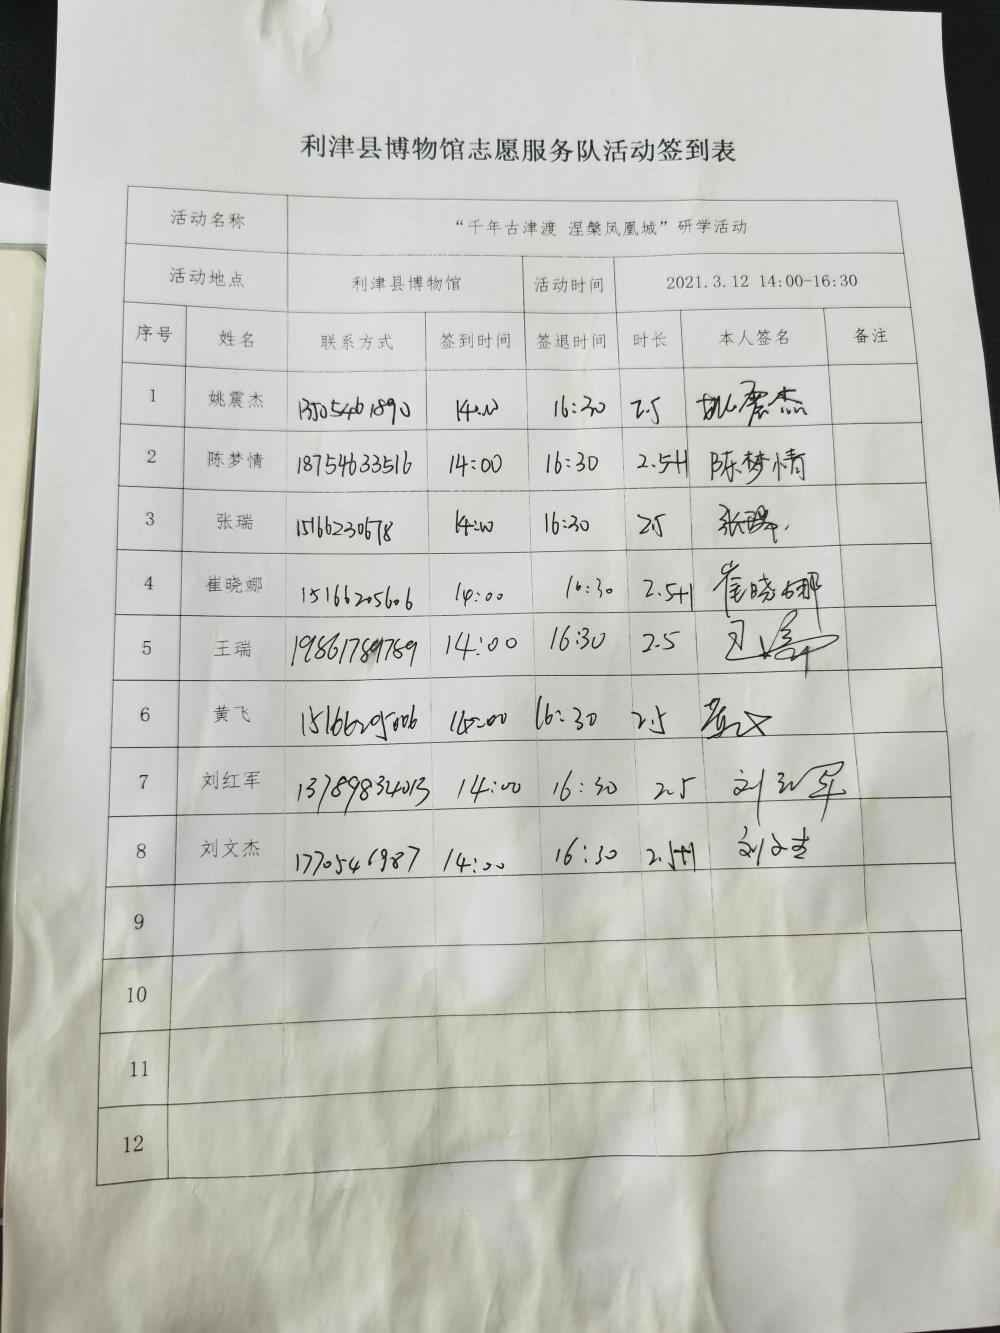 利津县博物馆志愿服务队活动签到表
活动名称 “千年古津渡 涅槃凤凰城”研学活动
活动地点 利津县博物馆 活动时间 2021.3.12 14:00-16:30
序号 姓名 联系方式 签到时间 签退时间 时长 本人签名 备注
1 姚震杰 13505461890 14:00 16:30 2.5 姚震杰
2 陈梦情 18754633516 14:00 16:30 2.5H 陈梦情
3 张瑞 15166230678 14:00 16:30 2.5 张瑞
4 崔晓娜 15166205606 14:00 16:30 2.5H 崔晓娜
5 王瑞 19861789789 14:00 16:30 2.5 王瑞
6 黄飞 15166205006 14:00 16:30 2.5 黄飞
7 刘红军 13789834013 14:00 16:30 2.5 刘红军
8 刘文杰 1770546987 14:00 16:30 2.5H 刘文杰
9
10
11
12